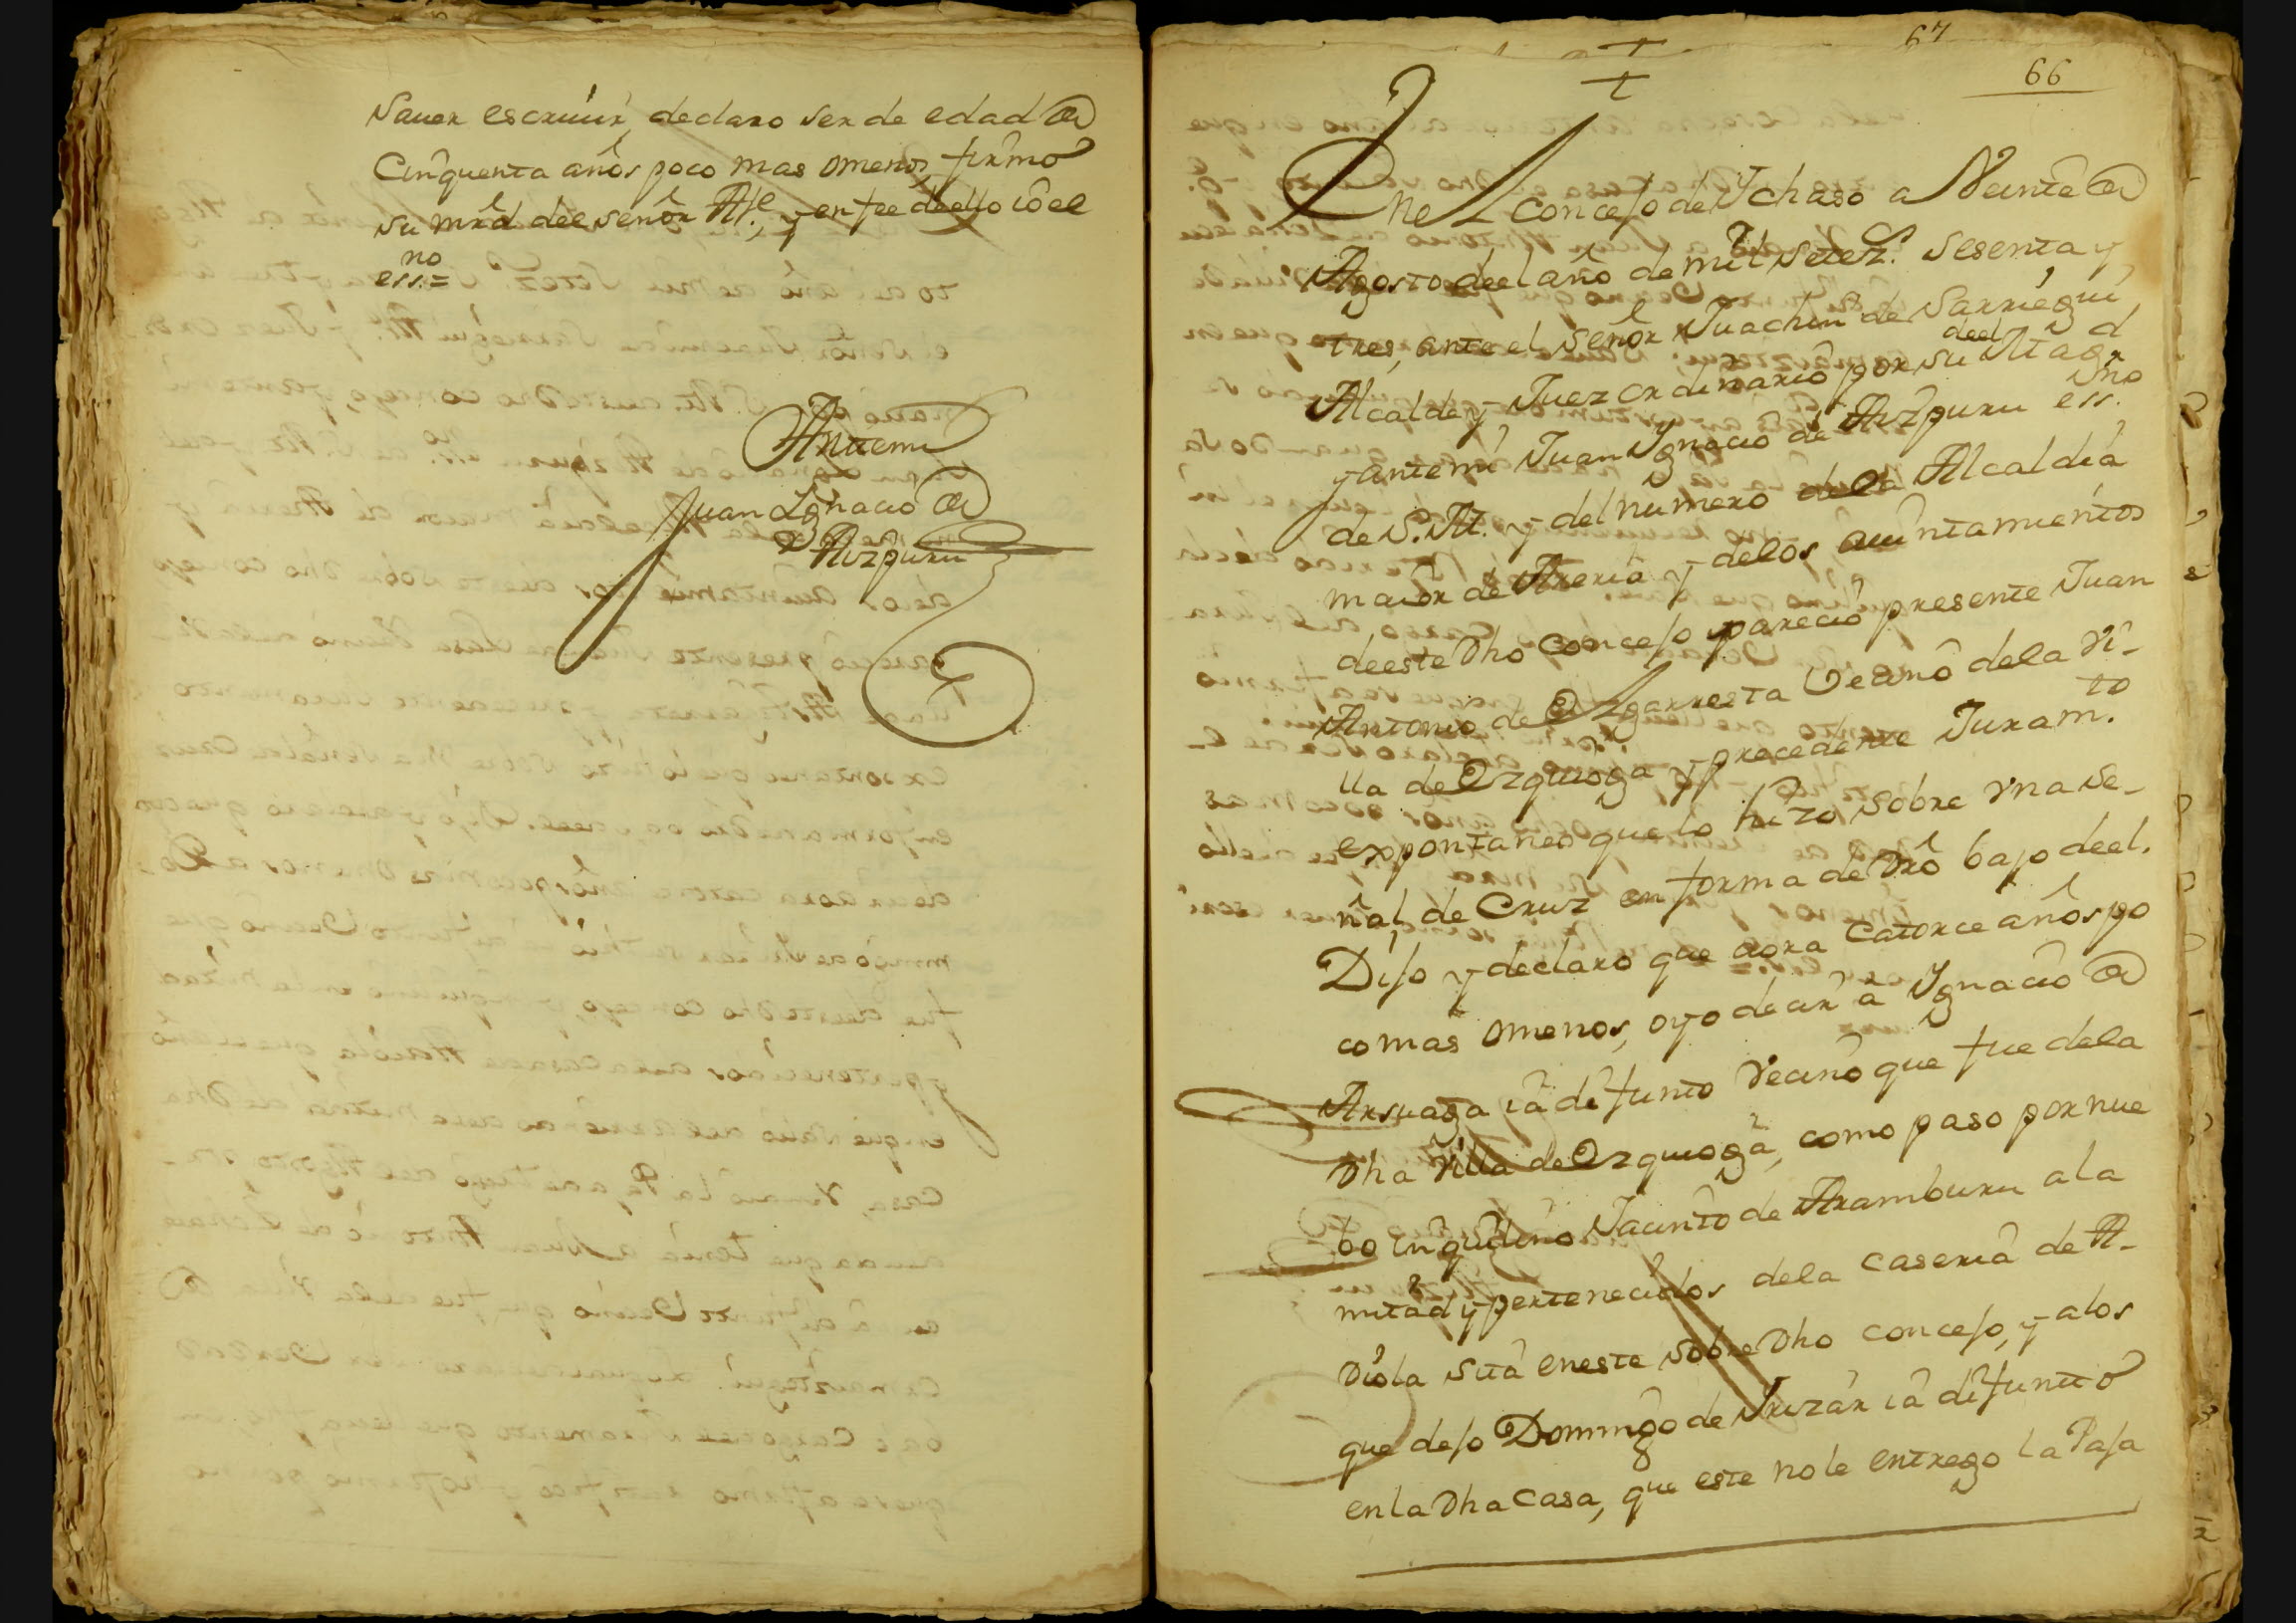 Sauer escriuir, declaro ser de edad de
Cinquenta años poco mas omenos, firmó
su mrd del señor Alte, y en fee deello io el
essno=
Antemi
Juan Ignacio de
Aizpuru
67
66
Enel concejo de Ychaso a Veinte de
Agosto deel año de mil setezs. sesenta y
tres, ante el señor Juachin de Sarriegui
Alcalde y Juez ordinario por su Magd
deel
y antemi Juan Ygnacio de Aizpuru essno
de S.M. y del numero dela Alcaldia
maior de Areria y delos aiuntamientos
deeste dho concejo parecio presente Juan
Antonio de Algarresta Vecino dela Vi-
lla de Ezquioga y precedente Juramto
expontaneo que lo hizo sobre vna se-
ñal de Cruz en forma de dro bajo deel.
Dijo y declaro que aora catorce años po
co mas omenos, oyo decir a Ygnacio de
Arsuaga ia difunto vecino que fue dela
dha villa de Ezquioga, como paso por nue
bo inquilino Jacinto de Aramburu ala
mitad y pertenecidos dela caseria de A-
diola sita eneste sobre dho concejo, y alos
que dejo Domingo de Irizar ia difunto
enla dha casa, que este nole entrego la Paja